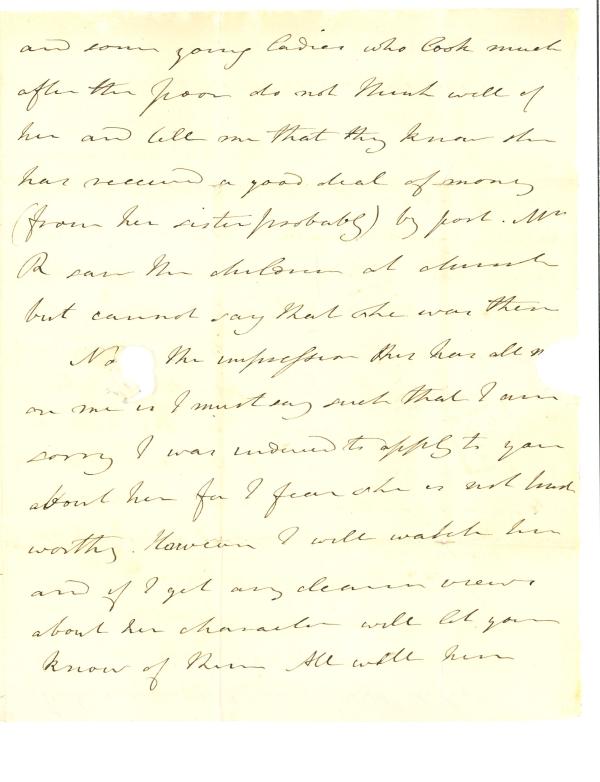 and some young ladies who look much
after the poor do not think well of
her and tell me that they know she
has received a good deal of money
(from her sister probably) by post. Mrs
R saw the children at church
but cannot say that she was there
No the impression this has all m
on me is I must say such that I am
sorry I was induced to apply to you
about her for I fear she is not trust
worthy. However I will watch her
and if I get any clearer views
about her character will let you
know of them All well here